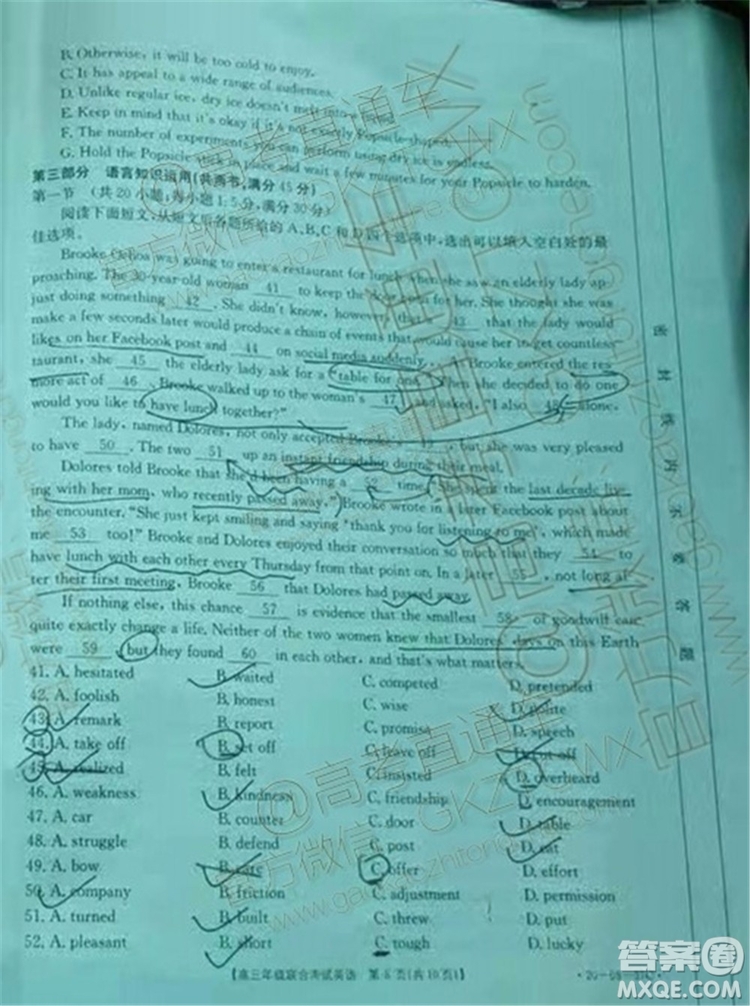 B. Otherwise, it will be too cold to enjoy.
C. It has appeal to a wide range of audiences.
D. Unlike regular ice, dry ice doesn't melt into a
E. Keep in mind that it's okay if it's not exactly Popsicle-shaped.
F. The number of experiments you can perform using dry ice is endless.
G. Hold the Popsicle stick in place and wait a few minutes for your Popsicle to harden.
第三部分 语言知识运用(共两节,满分 45 分)
第一节 (共 20 小题;每小题 1.5 分,满分 30 分)
阅读下面短文,从短文后各题所给的 A、B、C 和 D 四个选项中,选出可以填入空白处的最
佳选项。
Brooke Ochoa was going to enter a restaurant for lunch when she saw an elderly lady ap
proaching. The 30-year-old woman 41 to keep the door open for her. She thought she was
just doing something 42 . She didn't know, however, that a 43 that the lady would
make a few seconds later would produce a chain of events that would cause her to get countless
likes on her Facebook post and 44 on social media suddenly. As Brooke entered the res
taurant, she 45 the elderly lady ask for a "table for one." Then she decided to do one
more act of 46 . Brooke walked up to the woman's 47 and asked, "I also 48 alone,
would you like to have lunch together?"
The lady, named Dolores, not only accepted Brooke's 49 , but she was very pleased
to have 50 . The two 51 up an instant friendship during their meal.
Dolores told Brooke that she'd been having a 52 time. She spent the last decade liv
ing with her mom, who recently passed away." Brooke wrote in a later Facebook post about
the encounter. "She just kept smiling and saying 'thank you for listening to me', which made
me 53 too!" Brooke and Dolores enjoyed their conversation so much that they 54 to
have lunch with each other every Thursday from that point on. In a later 55 , not long af
ter their first meeting, Brooke 56 that Dolores had passed away.
If nothing else, this chance 57 is evidence that the smallest 58 of goodwill can
quite exactly change a life. Neither of the two women knew that Dolores' days on this Earth
were 59 , but they found 60 in each other, and that's what matters.
41. A. hesitated B. waited C. competed D. pretended
42. A. foolish B. honest C. wise D. polite
43. A. remark B. report C. promise D. speech
44. A. take off B. set off C. leave off D. put off
45. A. realized B. felt C. insisted D. overheard
46. A. weakness B. kindness C. friendship D. encouragement
47. A. car B. counter C. door D. table
48. A. struggle B. defend C. post D. eat
49. A. bow B. care C. offer D. effort
50. A. company B. friction C. adjustment D. permission
51. A. turned B. built C. threw D. put
52. A. pleasant B. short C. tough D. lucky
【高三年级联合考试英语 第 页(共 10 页)】
密 封 线 内 不 要 答 题
@高考直通车
官方微信:GKZTCWX
答案圈